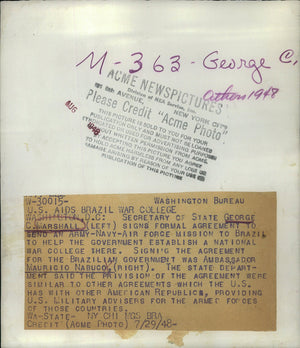 M-363-George C.
Others 1948
ACME NEWSPICTURES
Division of NEA Service, Inc.
AVENUE, NEW YORK CITY
Please Credit "Acme Photo"
THIS PICTURE IS SOLD TO YOU FOR YOUR
PUBLICATION ONLY AND MUST NOT BE LOANED
WITHOUT WRITTEN PERMISSION FROM US.
AUG
W-30015- WASHINGTON BUREAU
U.S. AIDS BRAZIL WAR COLLEGE
WASHINGTON, D.C: SECRETARY OF STATE GEORGE
C. MARSHALL (LEFT) SIGNS FORMAL AGREEMENT TO
SEND AN ARMY-NAVY-AIR FORCE MISSION TO BRAZIL
TO HELP THE GOVERNMENT ESTABLISH A NATIONAL
WAR COLLEGE THERE. SIGNING THE AGREEMENT
FOR THE BRAZILIAN GOVERNMENT WAS AMBASSADOR
MAURICIO NABUCO (RIGHT). THE STATE DEPART-
MENT SAID THE PRIVISION OF THE AGREEMENT WERE
SIMILAR TO OTHER AGREEMENTS WHICH THE U.S.
HAS WITH OTHER AMERICAN REPUBLICS PROVIDING
U.S. MILITARY ADVISERS FOR THE ARMED FORCES
OF THOSE COUNTRIES.
WA-STATE- NY CHI MGS BRA
CREDIT (ACME PHOTO) 7/29/48-